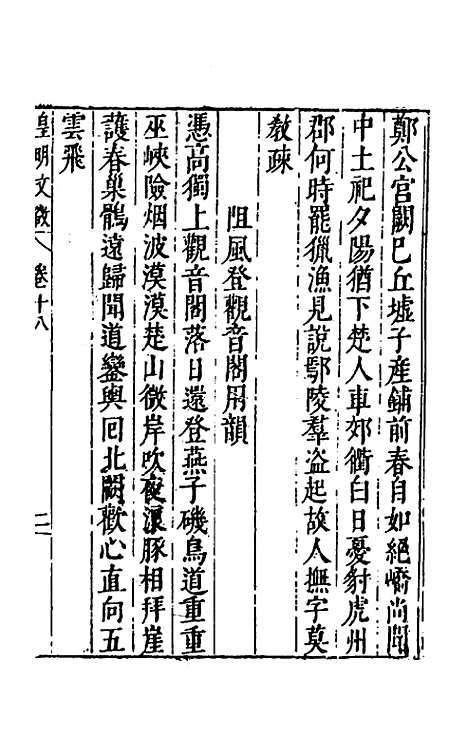 鄭公宮闕巳丘墟子産鋪前春自如絕嶠尚聞
中土祀夕陽猶下楚人車郊衢白日憂豺虎州
郡何時罷獵漁見說鄢陵羣盗起故人撫字莫
敎疎
阻風登觀音閣用韻
憑高獨上觀音閣落日還登燕子磯鳥道重重
巫峽險烟波漠漠楚山微岸吹夜浪豚相拜崖
護春巢鶻遠歸聞道鑾輿囘北闕歡心直向五
雲飛
皇明文徵 卷十八 二